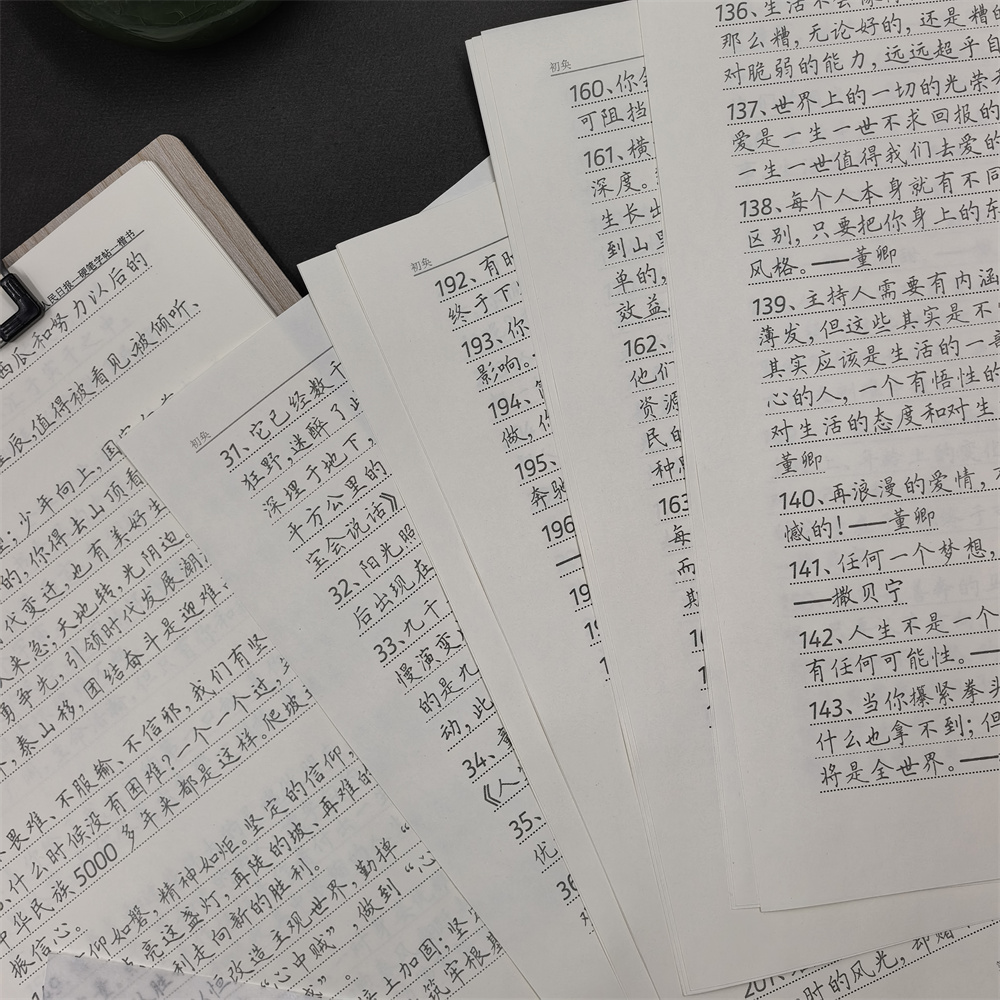 人民日报—硬笔字帖—楷书
西瓜和努力以后的
星辰,值得被看见被倾听、
少年向上,国
的,你得去山顶看
代变迁,也有美好生
人来急;天地转,光阴迫
勇争先,引领时代发展潮
泰山移,团结奋斗是迎难
畏难、不服输、不信邪,我们有坚
什么时候没有困难?一个一个过,
中华民族5000多年来都是这样。爬坡
振信心。
仰如磐,精神如炬。坚定的信仰,
亮这盏灯,再陡的坡、再难的
利走向新的胜利。
改造主观世界,勤掸“心
“心中贼”,做到“心
土加固;坚
筑牢根基
初奂
31、它已经数千
狂野,迷醉了此
深埋于地下,
平方公里的
宝会说话》
32、阳光照
后出现在
33、九千
慢演变
的是九
动,此
34、
《人
35、
优
36
初奂
192、有时
终于下
193、你
影响。
194、
做,你
195、
奔驰
196
——
初奂
160、你
可阻挡
161、横
深度。
生长出
到山
单的,
效益
162、
他们
资源
民的
种
163
每
而
136、生活不会
那么糟,无论好的,还是糟的
对脆弱的能力,远远超乎自
137、世界上的一切的光荣
爱是一生一世不求回报的
一生一世值得我们去爱的
138、每个人本身就有不同
区别,只要把你身上的东
风格。——董卿
139、主持人需要有内涵
薄发,但这些其实是不
其实应该是生活的一
心的人,一个有悟性的
对生活的态度和对生
董卿
140、再浪漫的爱情,
憾的!——董卿
141、任何一个梦想,
——撒贝宁
142、人生不是一个
有任何可能性。—
143、当你攥紧拳头
什么也拿不到;但
将是全世界。—
201、
时的风光,却